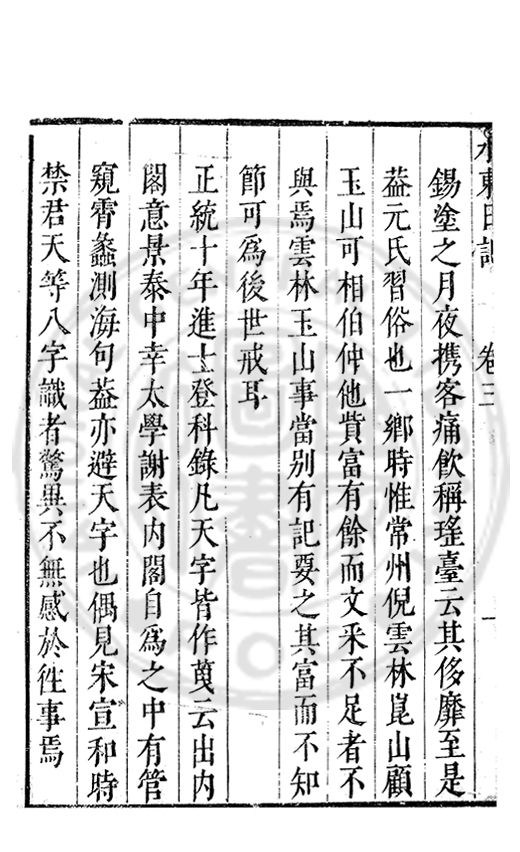 水東日記 卷三 一
錫塗之月夜携客痛飲稱瑤臺云其侈靡至是
葢元氏習俗也一鄉時惟常州倪雲林崑山顧
玉山可相伯仲他貲富有餘而文采不足者不
與焉雲林玉山事當别有記要之其富而不知
節可為後世戒耳
正統十年進士登科錄凡天字皆作𠀘云出内
閣意景泰中幸太學謝表内閣自為之中有管
窺霄蠡測海句葢亦避天字也偶見宋宣和時
禁君天等八字識者驚異不無感於徃事焉